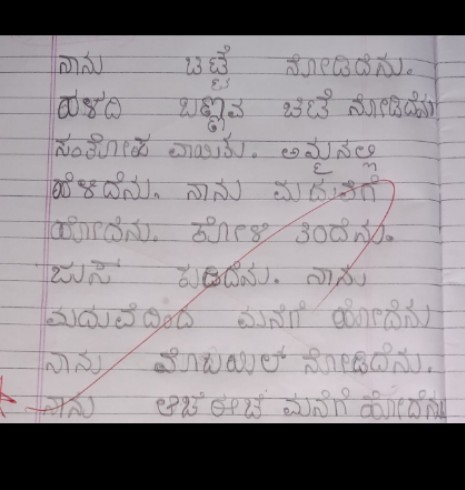 ನಾನು ಚಿಟ್ಟೆ ನೋಡಿದೆನು.
ಹಳದಿ ಬಣ್ಣವ ಚಿಟೆ ನೋಡಿದೆನು
ಸಂತೋಷ ವಾಯಿತು. ಅಮ್ಮನಲ್ಲಿ
ಹೆಳಿದೆನು. ನಾನು ಮದುವೆಗೆ
ಹೋದೆನು. ಕೋಳಿ ತಿಂದೆನು.
ಜುಸ್ ಕುಡಿದೆನು. ನಾನು
ಮದುವೆದಿಂದ ಮನೆಗೆ ಹೋದೆನು
ನಾನು ಮೊಬಯಿಲ್ ನೋಡಿದೆನು.
ನಾನು ಆಚೆ ಈಚೆ ಮನೆಗೆ ಹೋದೆನು